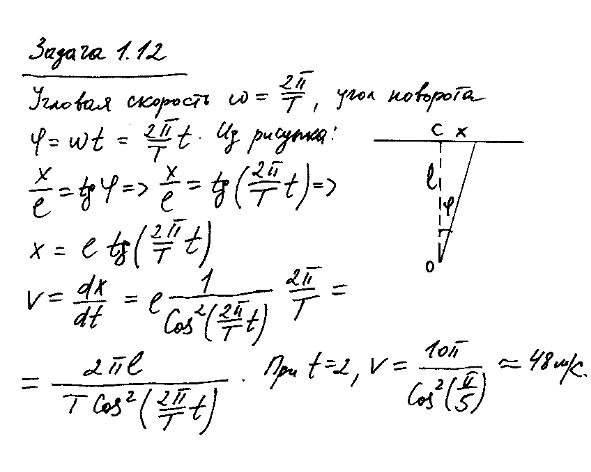 Задача 1.12
Угловая скорость ω = 2π/T, угол поворота
φ = ωt = 2π/T t. Из рисунка:
x/l = tg φ => x/l = tg(2π/T t) =>
x = l tg(2π/T t)
v = dx/dt = l 1/cos²(2π/T t) 2π/T =
= 2πl/(T cos²(2π/T t)). При t=2, v = 10π/cos²(π/5) ≈ 48 м/с.
C x
l
φ
O